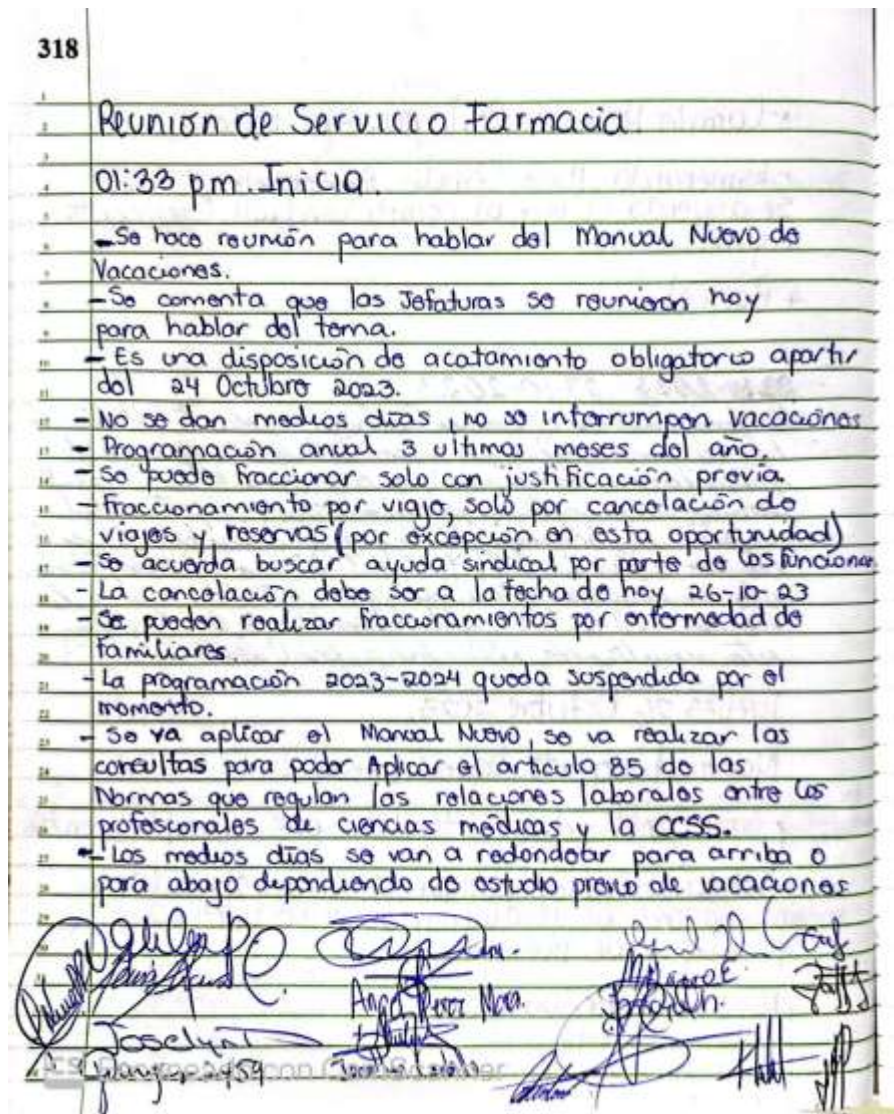 318
Reunión de Servicio Farmacia
01:33 pm. Inicia.
- Se hace reunión para hablar del Manual Nuevo de
Vacaciones.
- Se comenta que las Jefaturas se reunieron hoy
para hablar del tema.
- Es una disposición de acatamiento obligatorio apartir
del 24 Octubre 2023.
- No se dan medios días, no se interrumpen vacaciones
- Programación anual 3 ultimos meses del año.
- Se puede fraccionar solo con justificación previa.
- Fraccionamiento por viaje, solo por cancelación de
viajes y reservas (por excepción en esta oportunidad)
- Se acuerda buscar ayuda sindical por parte de los funcionar
- La cancelación debe ser a la fecha de hoy 26-10-23
- Se pueden realizar fraccionamientos por enfermedad de
familiares.
- La programación 2023-2024 queda suspendida por el
momento.
- Se va aplicar el Manual Nuevo, se va realizar las
consultas para poder Aplicar el articulo 85 de las
Normas que regulan las relaciones laborales entre los
profesionales de ciencias médicas y la CCSS.
- Los medios días se van a redondear para arriba o
para abajo dependiendo de estudio previo de vacaciones
Joselyn